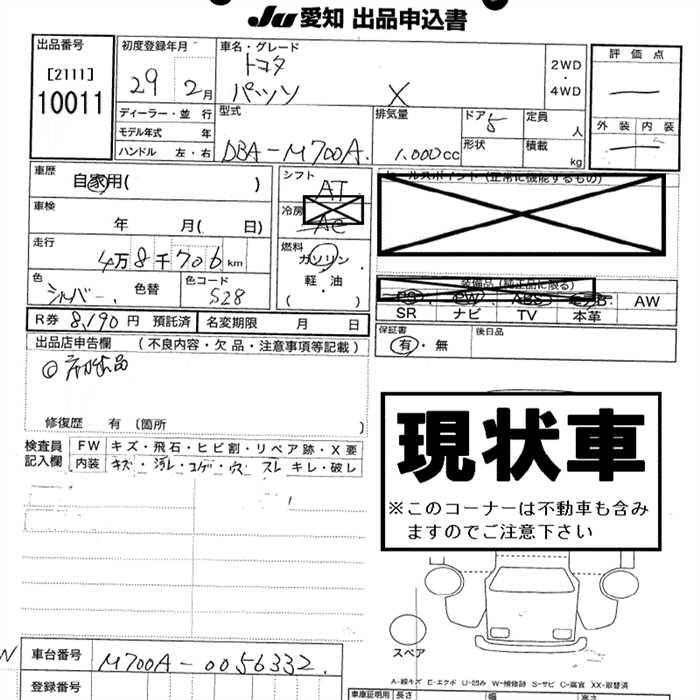 JU 愛知 出品申込書
出品番号
[2111]
10011
初度登録年月
29 2月
車名・グレード
トヨタ
パッソ X
2WD
・
4WD
評価点
外装 内装
ディーラー・並行
モデル年式 年
ハンドル 左・右
型式
DBA-M700A
排気量
1.000cc
ドア 5
形状
定員 人
積載 kg
車歴
自家用( )
車検
年 月( 日)
走行
4万8千706km
色
シルバー
色替
色コード
S28
シフト
AT
冷房
AC
燃料
ガソリン
軽・油
( )
セールスポイント(正常に機能するもの)
装備品(純正品に限る)
PS PW ABS エアB AW
SR ナビ TV 本革
R券 8,190円 預託済
名変期限 月 日
保証書
有・無
後日品
出品店申告欄 (不良内容・欠品・注意事項等記載)
修復歴 有〔箇所 〕
検査員
記入欄
FW キズ・飛石・ヒビ割・リペア跡・X要
内装 キズ・汚レ・コゲ・穴 スレ キレ・破レ
現状車
※このコーナーは不動車も含み
ますのでご注意下さい
スペア
A-線キズ E-エクボ U-凹み W-補修跡 S-サビ C-腐食 XX-取替済
車台番号 M700A-0056332
登録番号
車庫証明用 長さ 幅 高さ